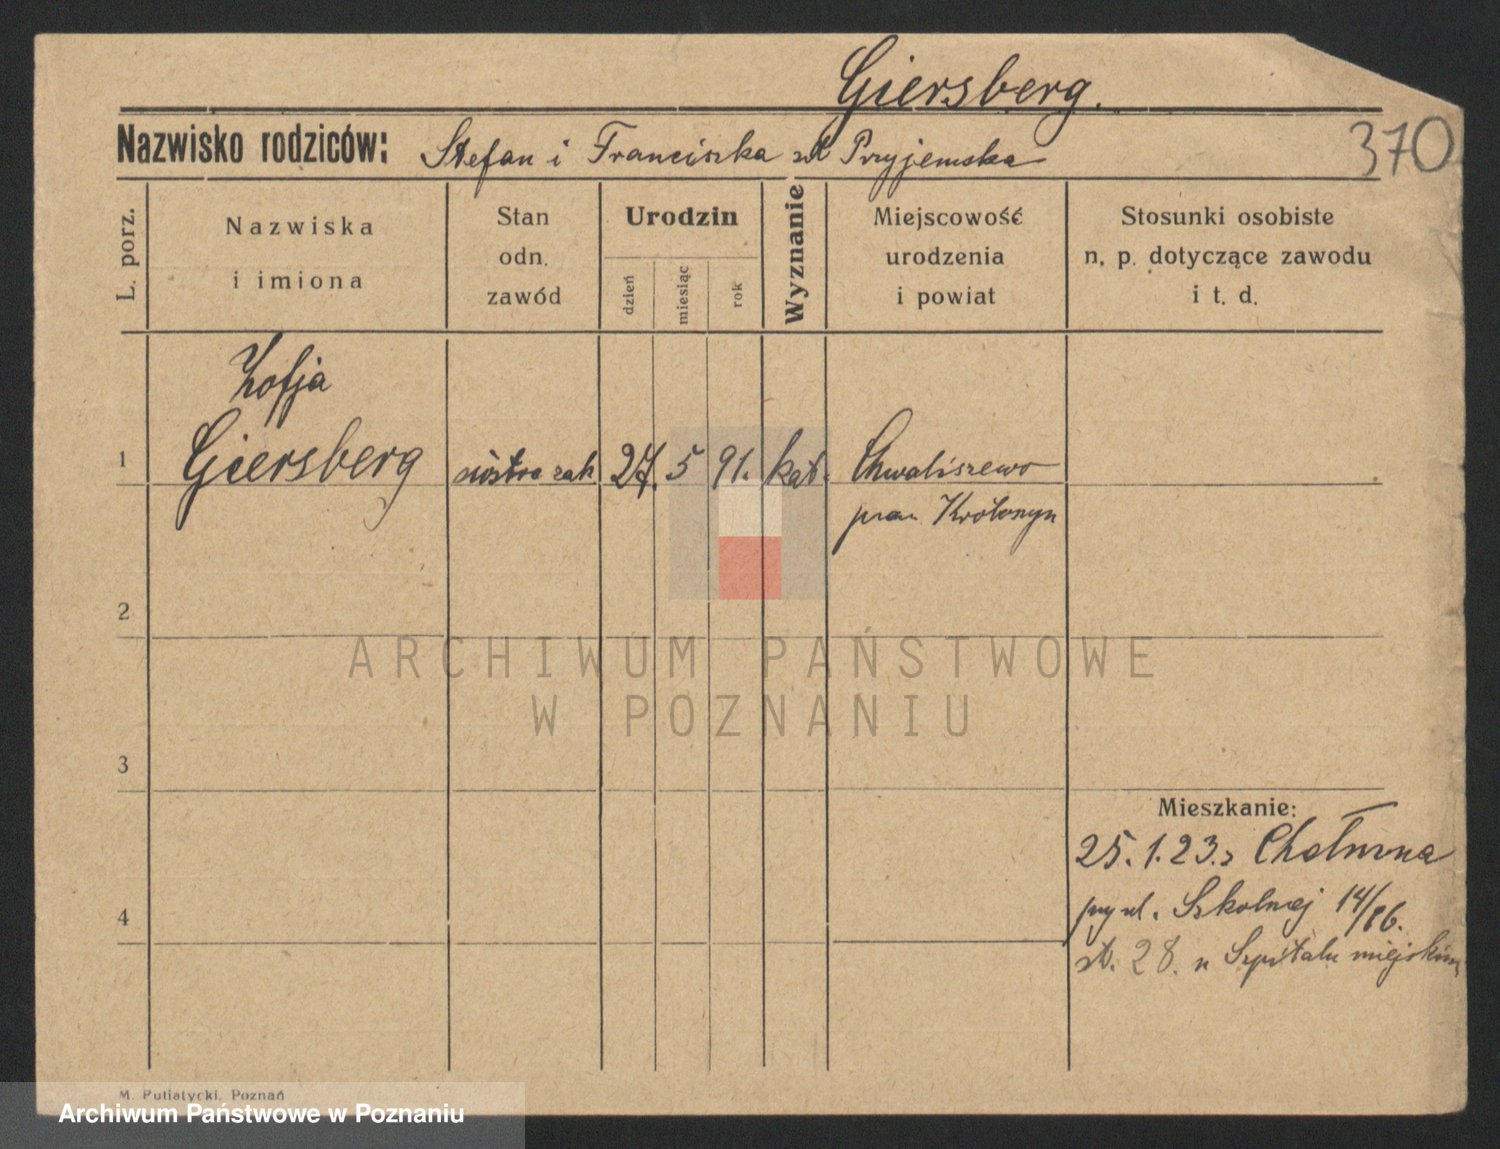 Giersberg.
Nazwisko rodziców: Stefan i Franciszka Przyjemska
370
L. porz.
Nazwiska
i imiona
Stan
odn.
zawód
Urodzin
dzień
miesiąc
rok
Wyznanie
Miejscowość
urodzenia
i powiat
Stosunki osobiste
n. p. dotyczące zawodu
i t. d.
Zofja
1 Giersberg siostra zak 27. 5 91. kat. Chwaliszewo
Krotoszyn
2
ARCHIWUM PAŃSTWOWE
W POZNANIU
3
Mieszkanie:
25.1.23. z
ul. Szkolnej 14/16.
28. w Szpitalu miejskim
4
M. Putiatycki, Poznań
Archiwum Państwowe w Poznaniu